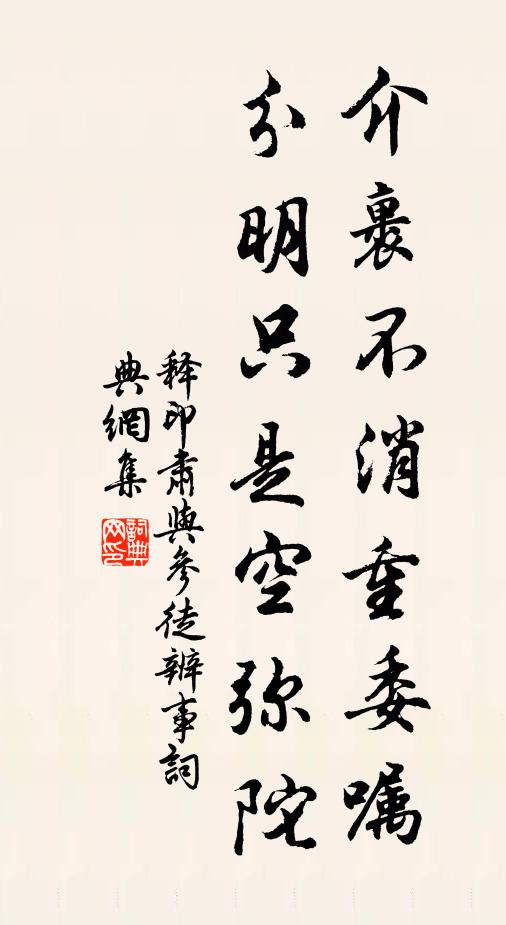 介裹不消重委嘱
分明只是空弥陀
释印肃與參徒辨事詞
典網集
詞典網印